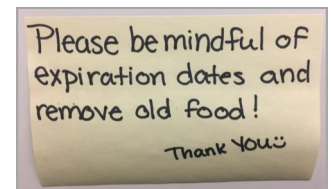 Please be mindful of
expiration dates and
remove old food!
Thank You☺